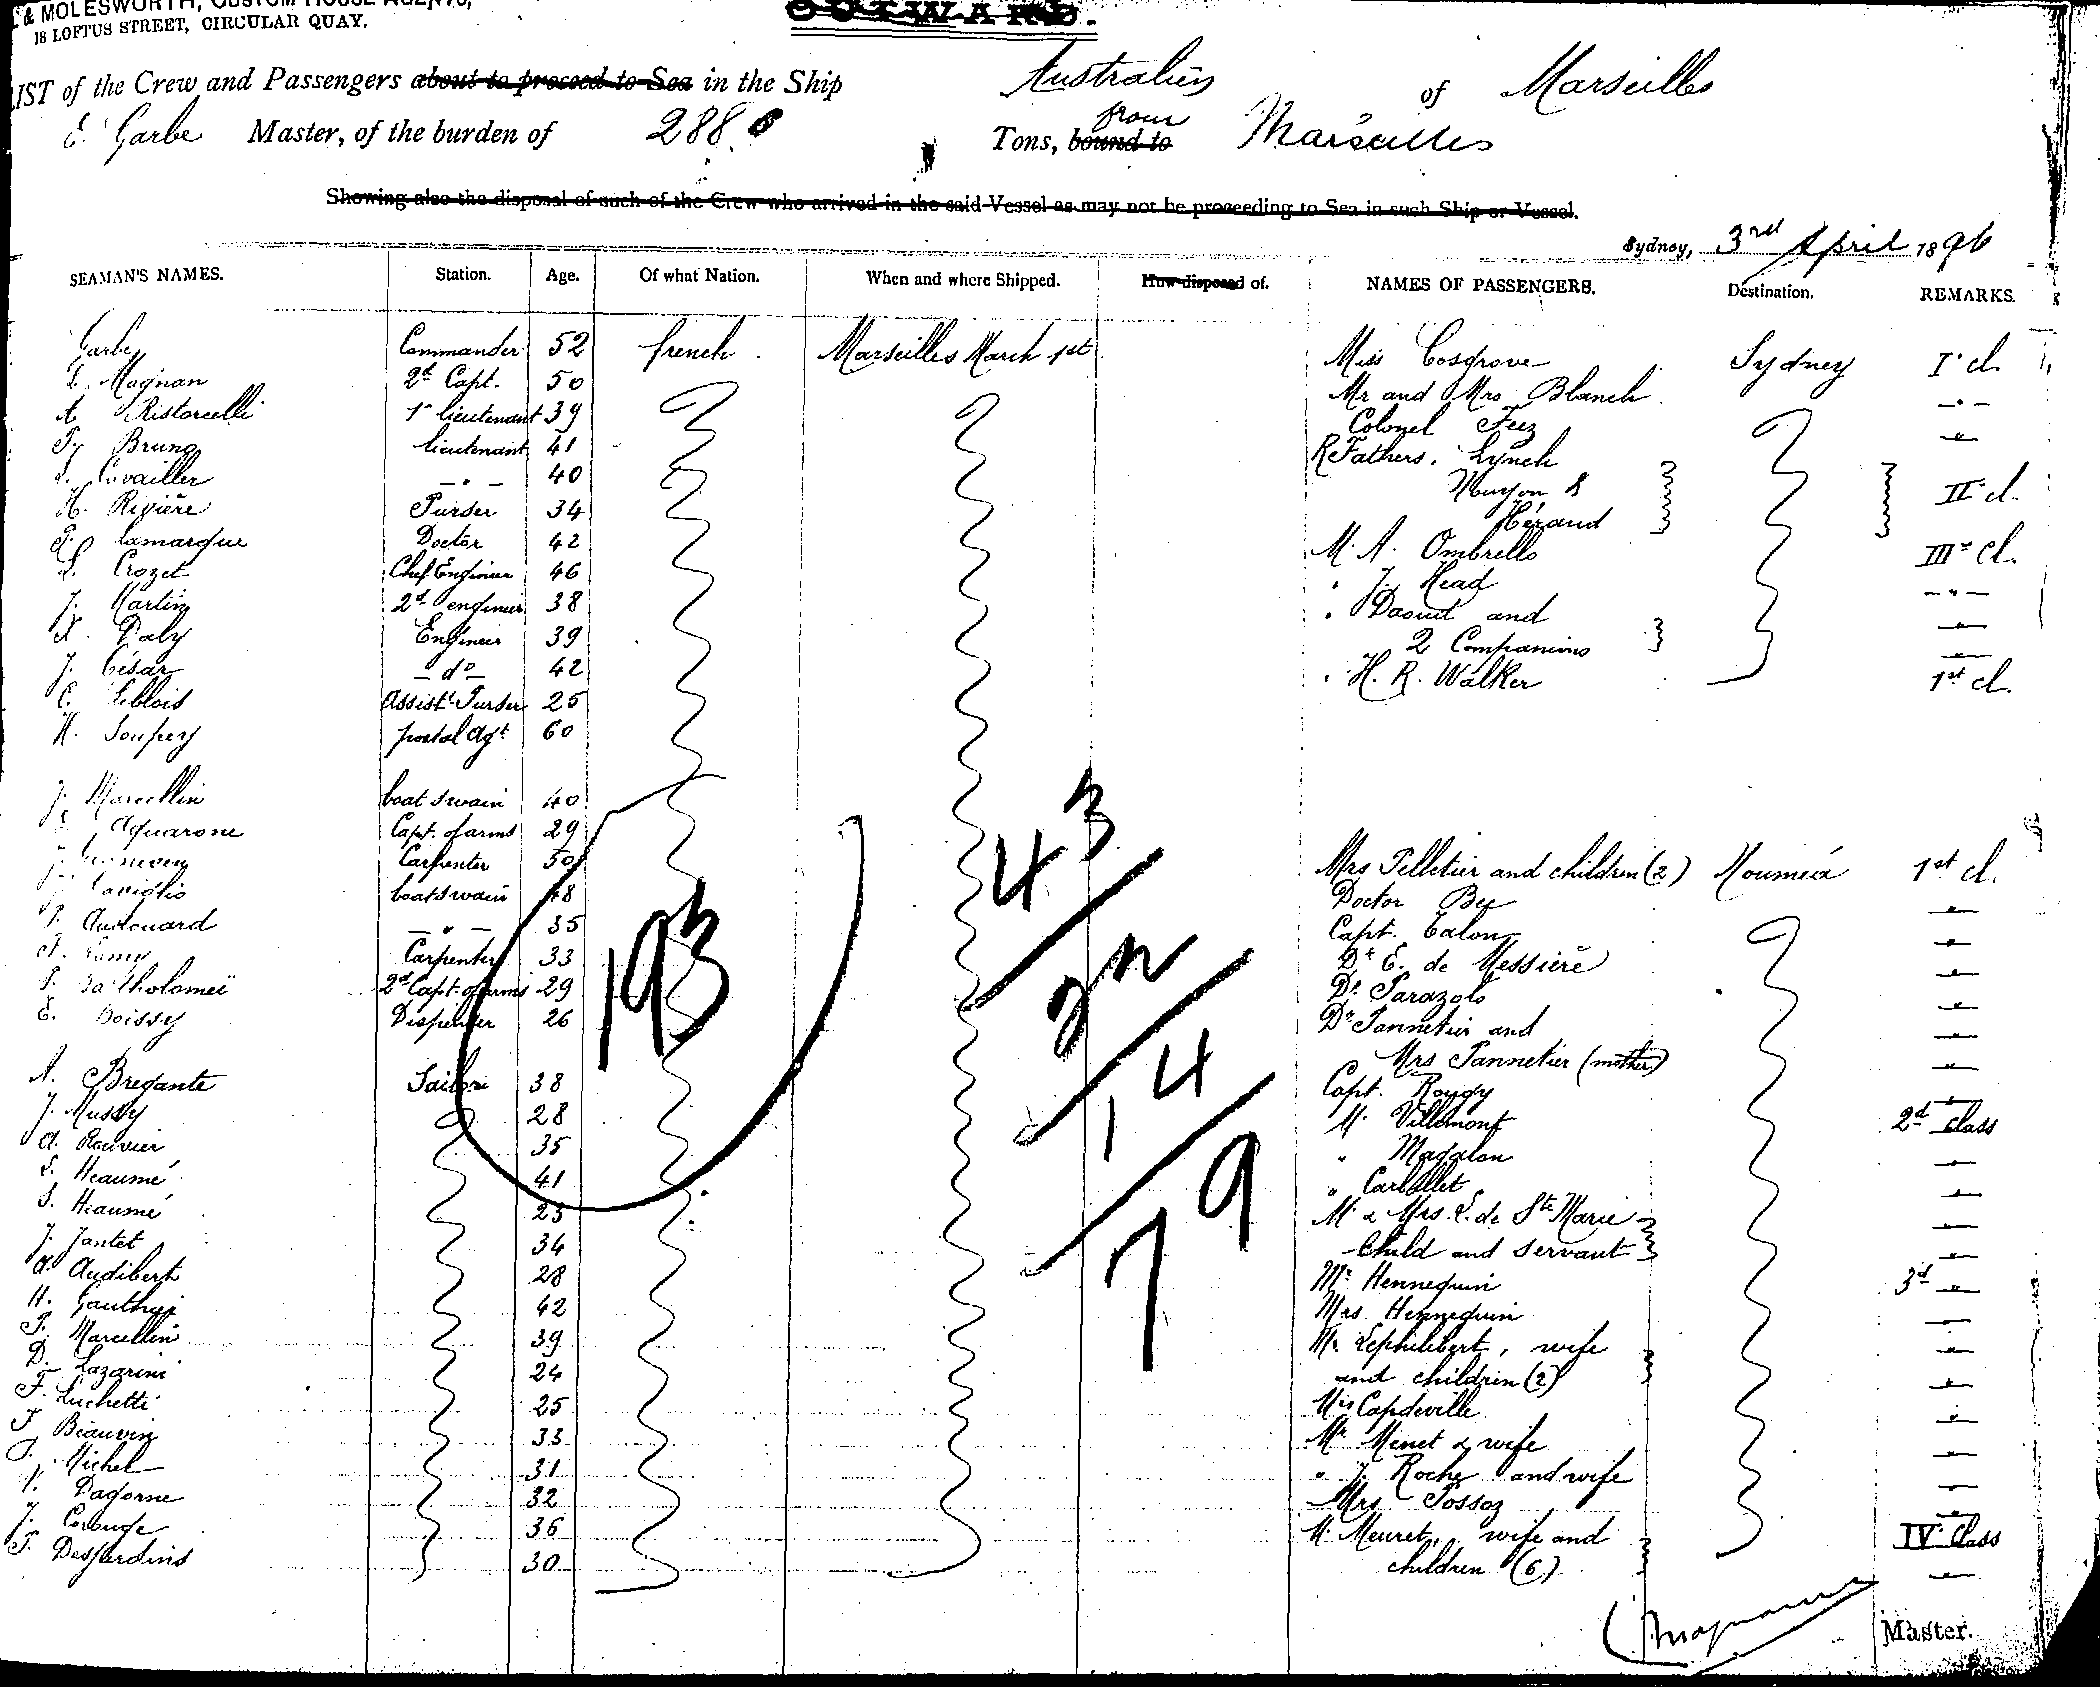 & MOLESWORTH, CUSTOM HOUSE AGENTS,
18 LOFTUS STREET, CIRCULAR QUAY.
OUTWARD.
LIST of the Crew and Passengers about to proceed to Sea in the Ship Australien of Marseilles
E. Garbe Master, of the burden of 288 Tons, bound to from Marseilles
Showing also the disposal of such of the Crew who arrived in the said Vessel as may not be proceeding to Sea in such Ship or Vessel.
Sydney, 3rd April 1896
SEAMAN'S NAMES. Station. Age. Of what Nation. When and where Shipped. How disposed of. NAMES OF PASSENGERS. Destination. REMARKS.
Garbe Commander 52 french Marseilles March 1st Miss Cosgrove Sydney I cl.
Magnan 2d Capt. 50 Mr and Mrs Blanch
A. Ristorcelli 1r lieutenant 39 Colonel Feez
Bruno lieutenant 41 R Fathers. Lynch
Cuvailler 40 &
H. Rivière Purser 34 Héraud II cl.
Lamarque Doctor 42 M. A. Ombrello III cl.
L. Crozet Chef Engineer 46 J. Head
J. Martin 2d engineer 38 Daoud and
Daly Engineer 39 2 Companions
J. César do 42 H. R. Walker 1st cl.
C. Leblois Assist. Purser 25
H. Soupey postal Agt 60
J. Marcellin boatswain 40
Aquarone Capt. of arms 29
Carpenter 50 Mrs Pelletier and children (2) Nouméa 1st cl.
Caviglio boatswain 48 Doctor
Audouard 35 Capt. Talon
Lamy Carpenter 33 Dr E. de Messière
Bartholomeï 2d Capt. of arms 29 Dr
E. Boissy Dispenser 26 Dr Pannetier and
Mrs Pannetier (mother)
A. Bregante Sailors 38 Capt.
J. Mussy 28 M. Villemont 2d Class
A. Rouvier 35 " Magalon
Heaumé 41 "
Heaumé 25 M. & Mrs. L. de Ste Marie
J. Jantet 34 Child and servant
A. Audibert 28 Mr Hennequin 3d
H. 42 Mrs Hennequin
Marcellin 39 M. Lephilibert, wife
D. Lazarini 24 and children (2)
F. Luchetti 25 Capdeville
Beauvin 33 Mr Menet & wife
Michel 31 " J. Roche and wife
Dagorne 32 Mrs Possoz
J. 36 M. Meuret, wife and IV Class
Desjardins 30 children (6)
193
43
22
14
79
Master.